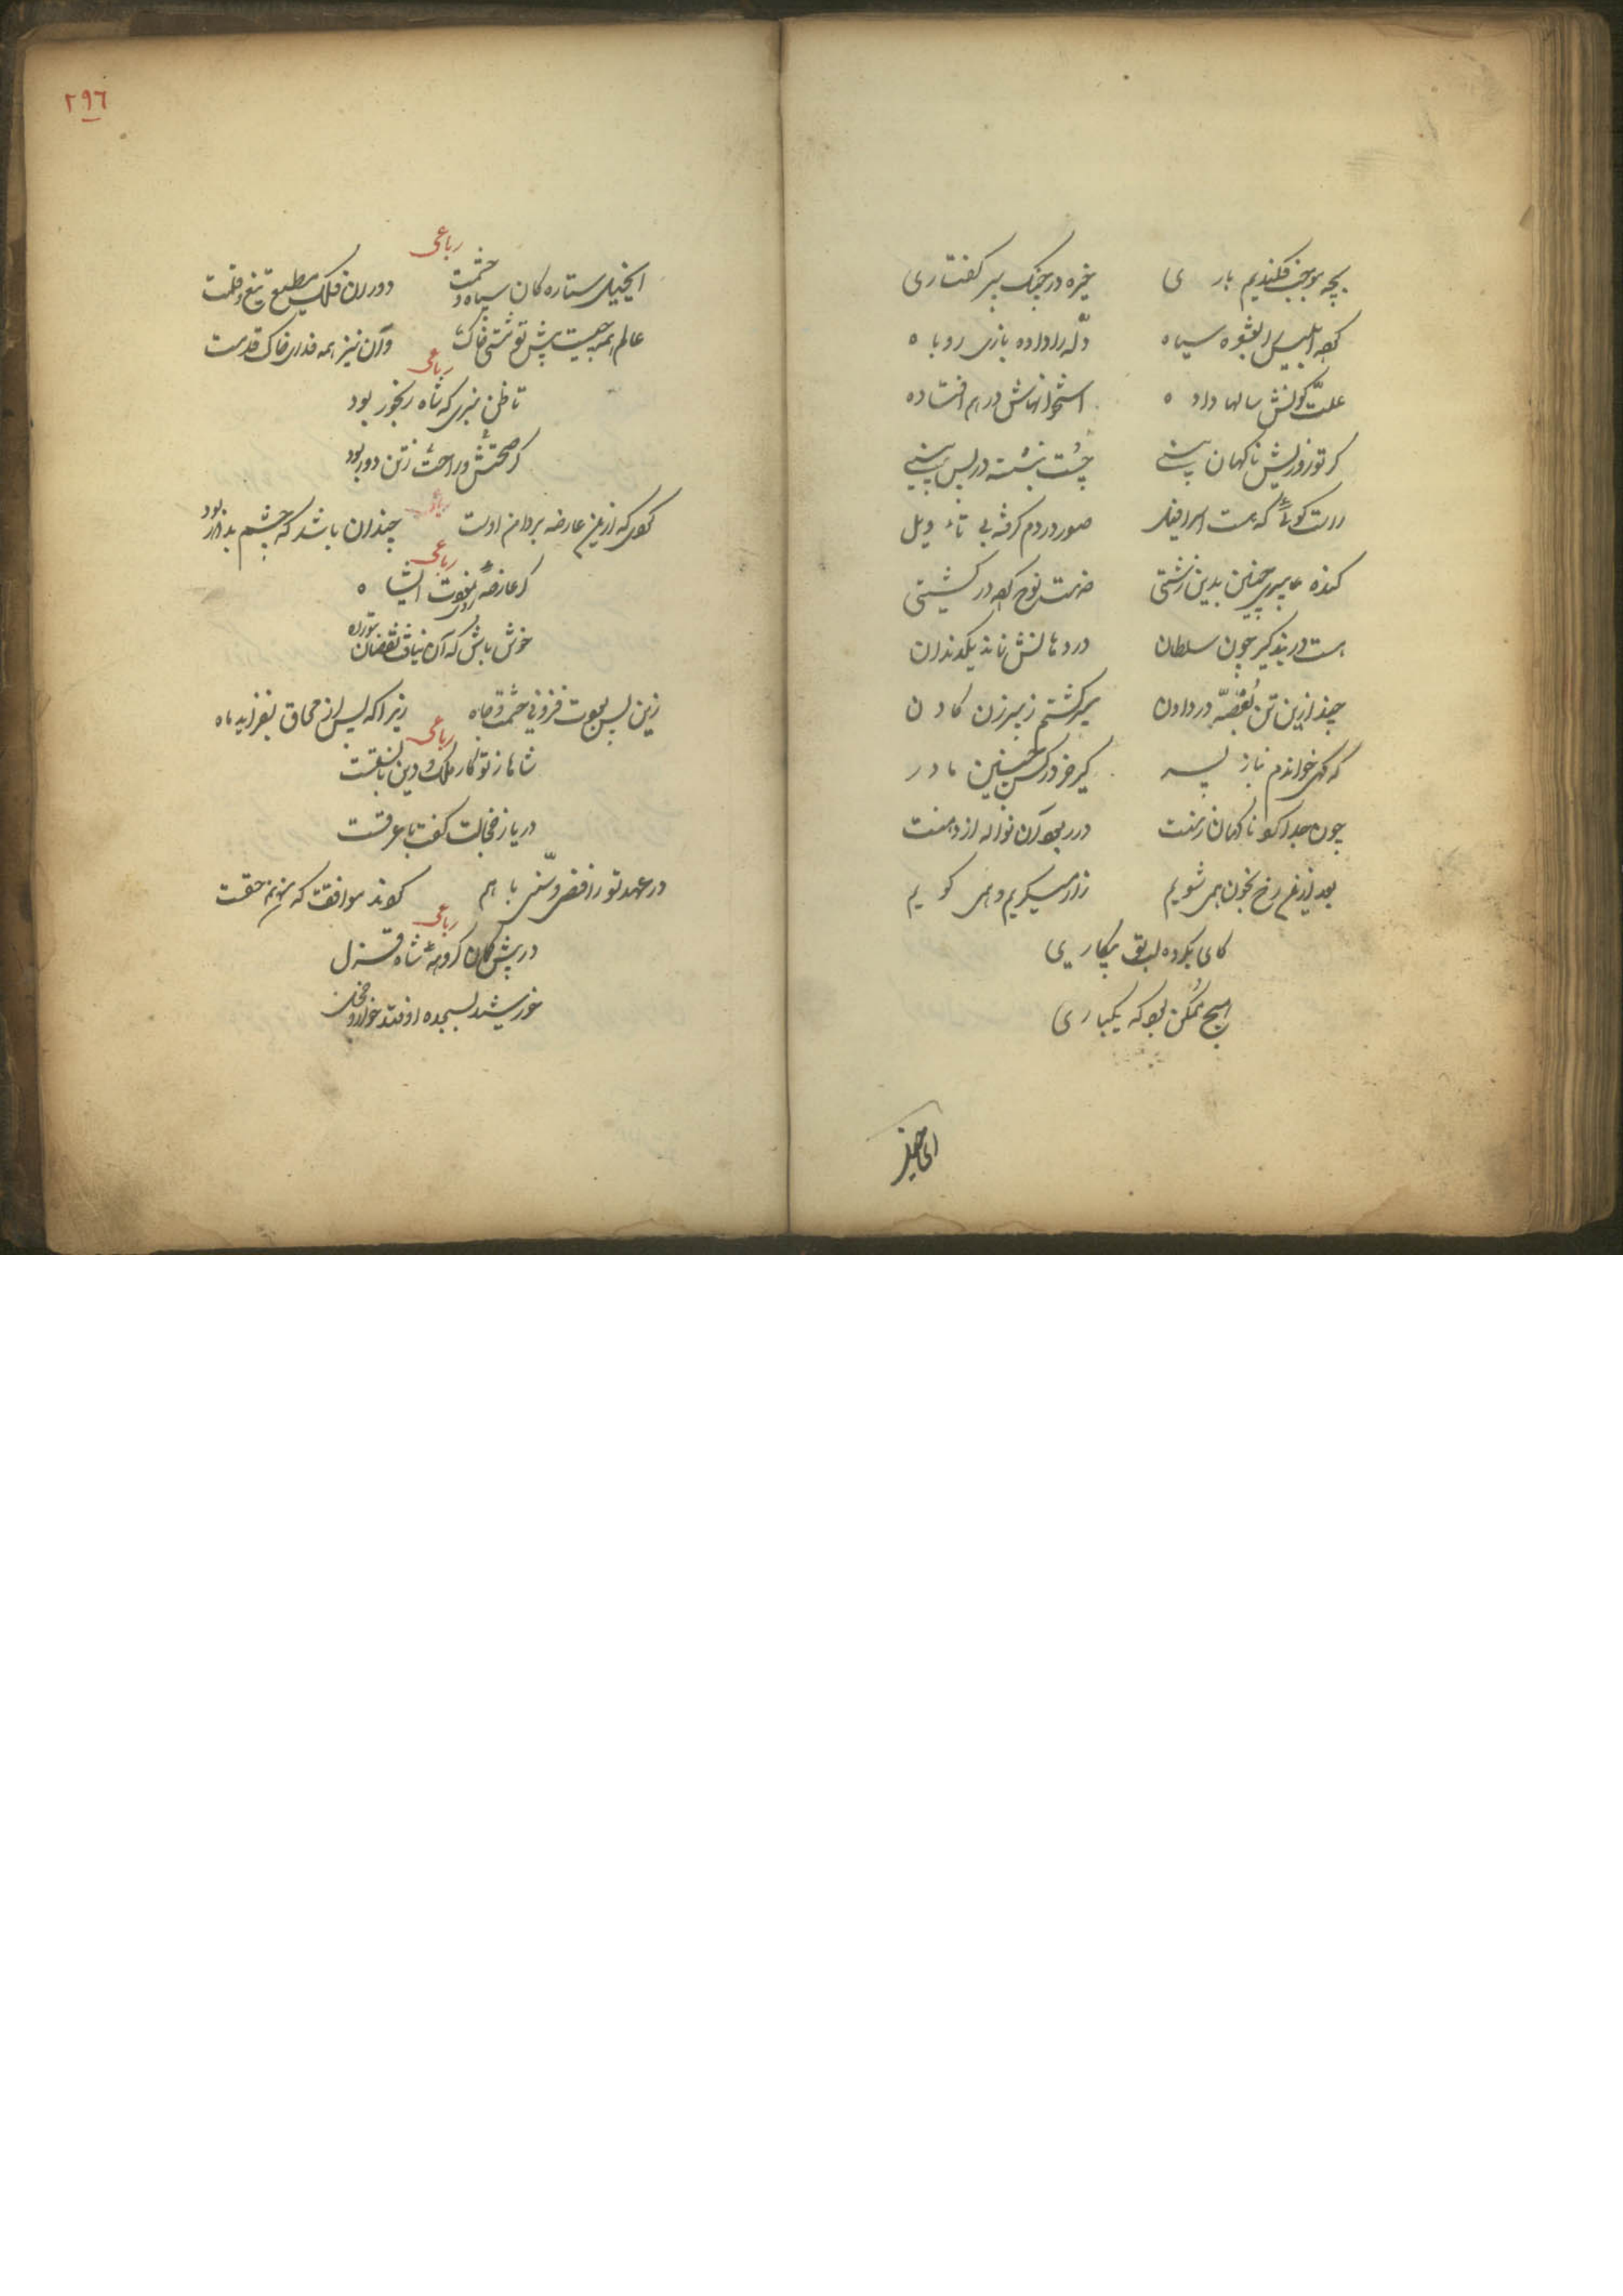 بچه موجب فکندیم باری خیره در جنک پیر کفتاری
کرده ابلیس را بعشوه سیاه دله را داده بازی روباه
علت کونش سالها داده استخوانهاش درهم افتاده
کر تو زو ریش ناکهان بینی چست بنشسته در پس بینی
راست کوئی که هست اسرافیل صور در دم کرفته بی تاویل
کنده پیری چنین بدین زشتی نوح کرده در کشتی
هست در بند کیر چون سلطان در دهانش نمانده یکدندان
چند ازین تن بغصه در دادن سیر کشتم ز پیرزن کادن
که کهی خواندم بناز پسر کیر خر در کس چنین مادر
چون جدا کرد ناکهان زمنت در ربود آن نواله از دهنت
بعد ازین رخ بخون همی شویم زار میکریم و همی کویم
کای بکرده لبق بیکاری
هیچ ممکن بود که یکباری
ای خیل
٢٩٦
رباعی
ای خیل ستارکان سیاه و حشمت دوران فلک مطیع تیغ و قلمت
عالم همه چیست پیش تو مشتی خاک وآن نیز همه فدای خاک قدمت
رباعی
تا ظن نبری که شاه رنجور بود
کر صحتش و راحت ز تن دور بود
رباعی
کوئی که ازین عارضه بر دامن اوست چندان باشد که چشم بد دور بود
رباعی
کر عارضه ای نمود ایشاه
خوش باش که آن نیافت نقصان بتو راه
زین پس بجوست فزونی حشمت و جاه زیرا که پس از محاق بفزاید ماه
رباعی
شاها ز تو کار ملک و دین با نسقست
دریا ز خجالت کفت با عرقست
در عهد تو رافضی و سنی با هم کردند موافقت که بوبکر حقست
رباعی
در پیش کمان کروهه شاه قزل
خورشید بسجده اوفتد خوار و خجل